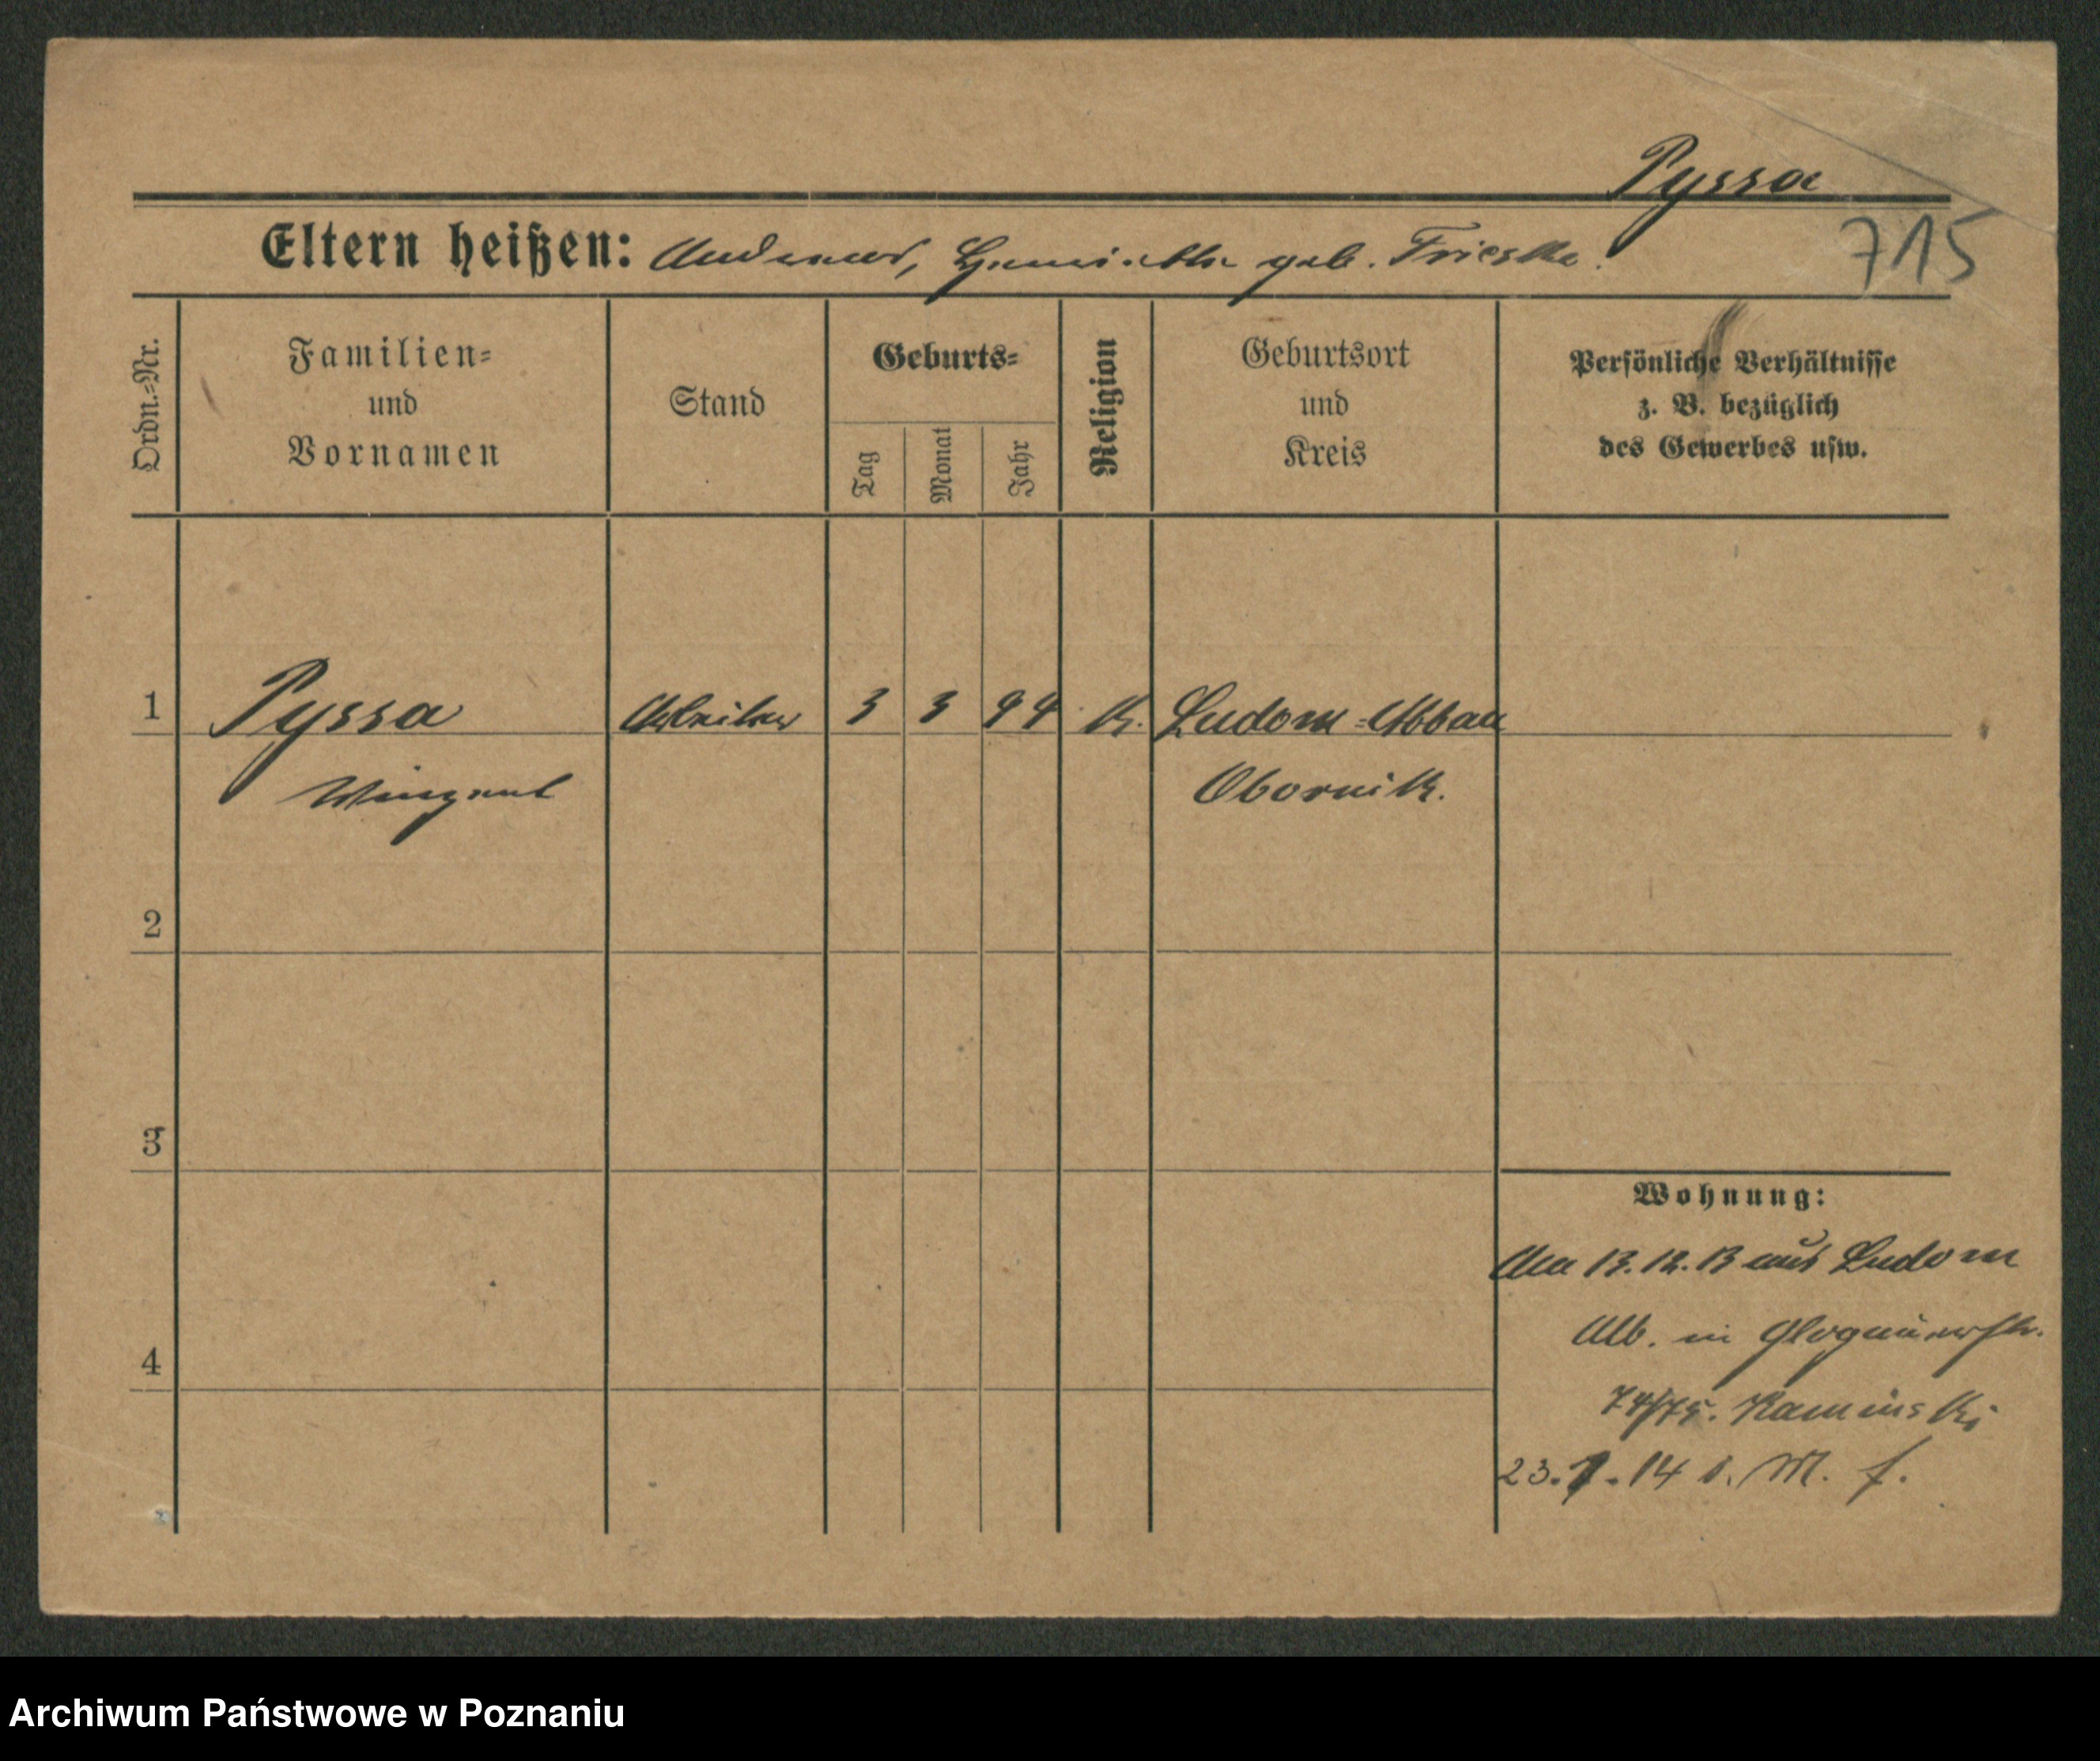 Pyssa
715
Eltern heißen: Andreas, geb. Frieske.
Ordn.=Nr.
Familien=
und
Vornamen
Stand
Geburts=
Tag
Monat
Jahr
Religion
Geburtsort
und
Kreis
Persönliche Verhältnisse
z. B. bezüglich
des Gewerbes usw.
1 Pyssa Arbeiter 3 3 94 k. Ludom=Abbau
Vinzent Obornik.
2
3
4
Wohnung:
13.12.13 aus Ludom
Abb. in Glogauerstr.
74/75. Kaminski
23. .14 M. f.
Archiwum Państwowe w Poznaniu